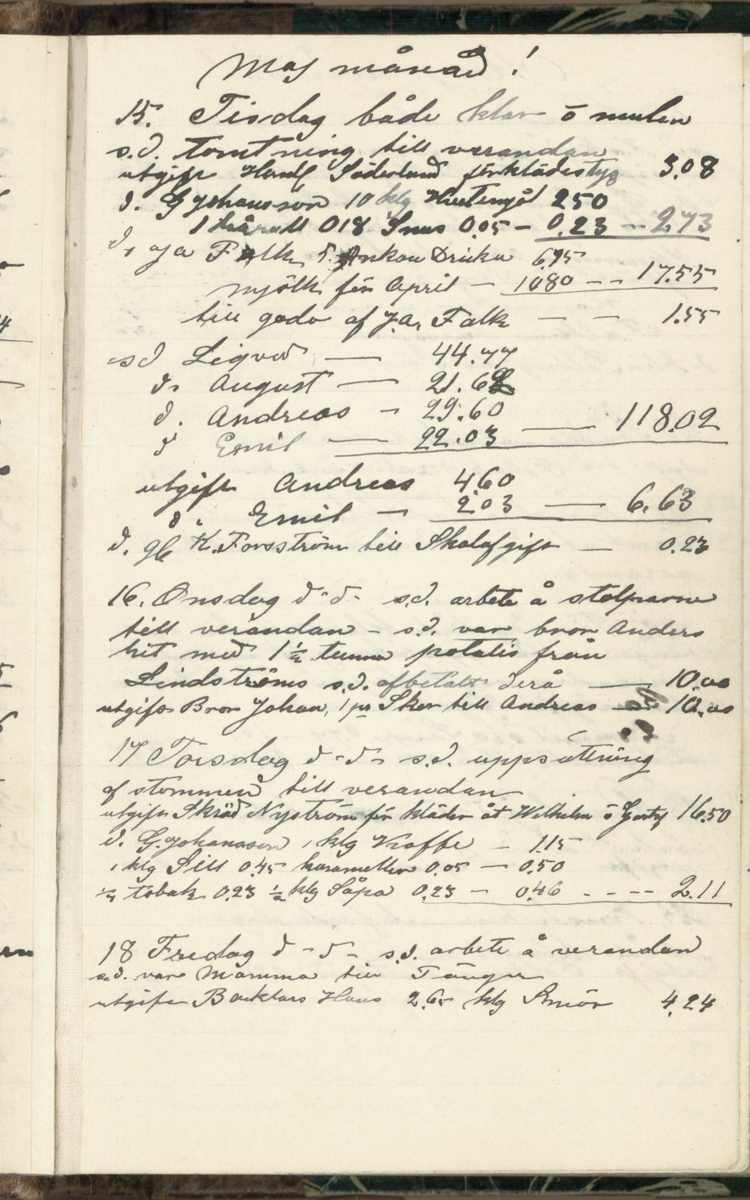 Maj månad!
15. Tisdag både klar o mulen
s.d. tomtning till verandan
utgift Handl Söderlund förklädestyg 3.08
d. G Johansson 10 klg Hvetemjöl 250
1 trårull 018 Snus 0.05 - 0.23 - 2.73
d. Falk, Dricka 6.75
mjölk för April - 1080 - - 17.55
till godo af J.A. Falk - - 1.55
sd Liqvid - 44.77
d. August - 21.62
d. Andreas - 29.60
d. Emil - 22.03 - 118.02
utgift Andreas 460
d. Emil - 2.03 - 6.63
d. K. Forsström till Skolafgift - 0.23
16. Onsdag d-d- s.d. arbete å stolparne
till verandan - s.d. var bror Anders
hit med 1½ tunna potatis från
Lindströms s.d. afbetalt derå - 10.00
utgift Bror Johan, 1 pr Skor till Andreas - 10.00
17 Torsdag d-d- s.d. uppsättning
af stommen till verandan
utgift Skräd Nyström för kläder åt Wilhelm o Gustf 16.50
d. G. Johansson 1 klg Kaffe - 1.15
1 klg Sill 0.45 karameller 0.05 - 0.50
tobak 0.23 ½ klg Såpa 0.23 - 0.46 - - - - 2.11
18 Fredag d-d- s.d. arbete å verandan
s.d. var Mamma till
utgift 2.65 klg Smör 4.24